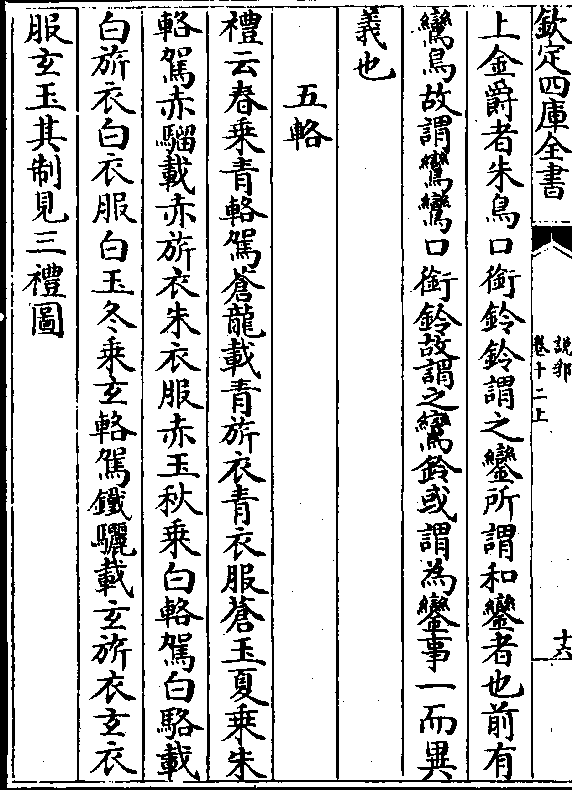 欽定四庫全書
說郛
卷十二上
十六
上金爵者朱鳥口銜鈴鈴謂之鑾所謂和鑾者也前有
鸞鳥故謂鸞鸞口銜鈴故謂之鸞鈴或謂為鑾事一而異
義也
五輅
禮云春乘青輅駕蒼龍載青旂衣青衣服蒼玉夏乘朱
輅駕赤騮載赤旂衣朱衣服赤玉秋乘白輅駕白駱載
白旂衣白衣服白玉冬乘玄輅駕鐵驪載玄旂衣玄衣
服玄玉其制見三禮圖